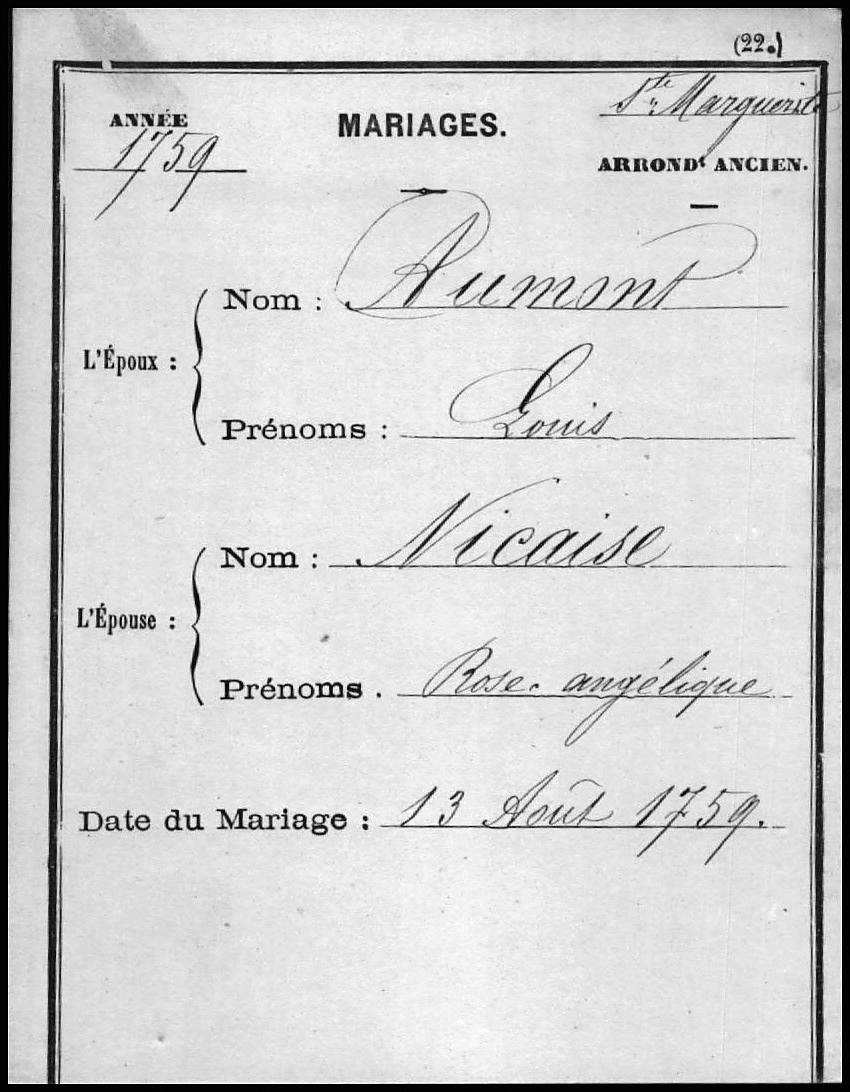 (22.)
ANNÉE
1759
MARIAGES.
Ste Marguerite
ARRONDt ANCIEN.
L'Époux :
Nom : Aumont
Prénoms : Louis
L'Épouse :
Nom : Nicaise
Prénoms . Rose. angélique
Date du Mariage : 13 Août 1759.